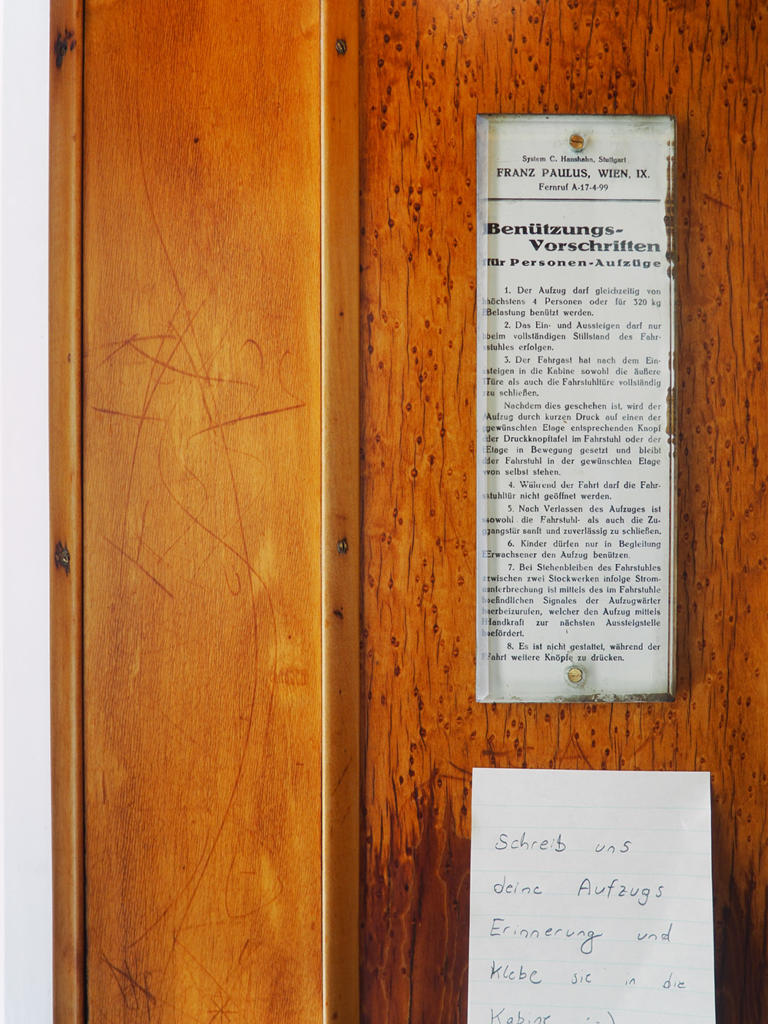 System C. Haushahn, Stuttgart
FRANZ PAULUS, WIEN, IX.
Fernruf A-17-4-99
Benützungs-
Vorschriften
für Personen-Aufzüge
1. Der Aufzug darf gleichzeitig von
höchstens 4 Personen oder für 320 kg
Belastung benützt werden.
2. Das Ein- und Aussteigen darf nur
beim vollständigen Stillstand des Fahr-
stuhles erfolgen.
3. Der Fahrgast hat nach dem Ein-
steigen in die Kabine sowohl die äußere
Türe als auch die Fahrstuhltüre vollständig
zu schließen.
Nachdem dies geschehen ist, wird der
Aufzug durch kurzen Druck auf einen der
gewünschten Etage entsprechenden Knopf
der Druckknopftafel im Fahrstuhl oder der
Etage in Bewegung gesetzt und bleibt
der Fahrstuhl in der gewünschten Etage
von selbst stehen.
4. Während der Fahrt darf die Fahr-
stuhltür nicht geöffnet werden.
5. Nach Verlassen des Aufzuges ist
sowohl die Fahrstuhl- als auch die Zu-
gangstür sanft und zuverlässig zu schließen.
6. Kinder dürfen nur in Begleitung
Erwachsener den Aufzug benützen.
7. Bei Stehenbleiben des Fahrstuhles
zwischen zwei Stockwerken infolge Strom-
unterbrechung ist mittels des im Fahrstuhle
befindlichen Signales der Aufzugwärter
herbeizurufen, welcher den Aufzug mittels
Handkraft zur nächsten Aussteigstelle
befördert.
8. Es ist nicht gestattet, während der
Fahrt weitere Knöpfe zu drücken.
Schreib uns
deine Aufzugs
Erinnerung und
Klebe sie in die
Kabine :)